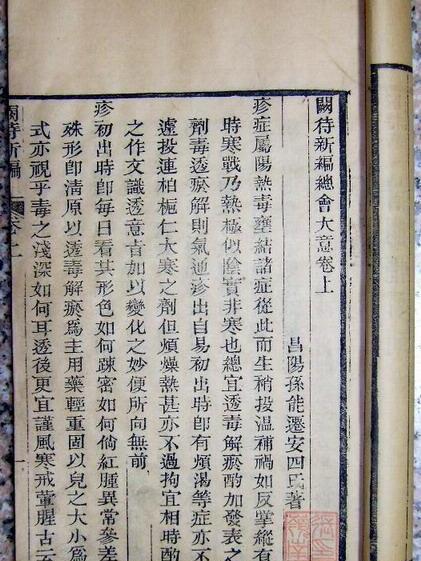 闕待新編總會大意卷上
昌陽孫能遷安四氏著
疹症屬陽熱毒壅結諸症從此而生稍投溫補禍如反掌縱有
時寒戰乃熱極似陰實非寒也總宜透毒解瘀酌加發表之
劑毒透瘀解則氣通疹出自易初出時即有煩渴等症亦不
遽投連柏梔仁大寒之劑但煩燥熱甚亦不過拘宜相時酌
之作文識透意旨加以變化之妙便所向無前
疹初出時即每日看其形色如何疎密如何倘紅腫異常參差
殊形即清原以透毒解瘀為主用藥輕重固以兒之大小為
式亦視乎毒之淺深如何耳透後更宜謹風寒戒葷腥古云
闕待新編 卷上
一